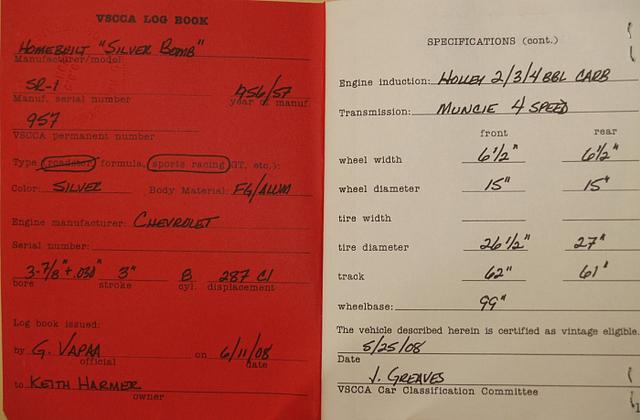 VSCCA LOG BOOK
HOMEBUILT "SILVER BOMB"
Manufacturer/model
SR-1 1956/57
Manuf. serial number year of manuf.
957
VSCCA permanent number
Type (roadster, formula, sports racing GT, etc.):
Color: SILVER Body Material: FG/ALUM
Engine manufacturer: CHEVROLET
Serial number:
3-7/8"+.030" 3" 8 287 CI
bore stroke cyl. displacement
Log book issued:
by G. VAPAA on 6/11/08
official date
to KEITH HARMER
owner
SPECIFICATIONS (cont.)
Engine induction: HOLLEY 2/3/4 BBL CARB
Transmission: MUNCIE 4 SPEED
front rear
wheel width 6 1/2" 6 1/2"
wheel diameter 15" 15"
tire width
tire diameter 26 1/2" 27"
track 62" 61"
wheelbase: 99"
The vehicle described herein is certified as vintage eligible.
5/25/08
Date
J. GREAVES
VSCCA Car Classification Committee